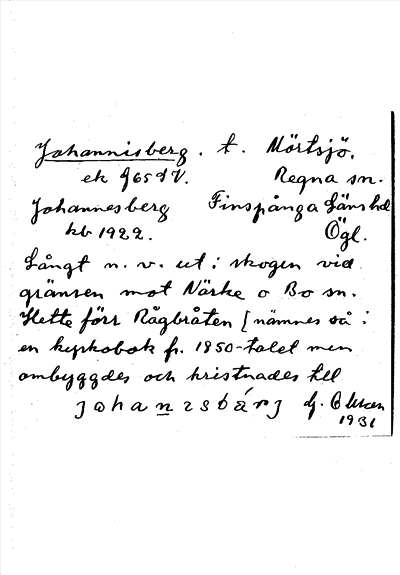 Johannisberg. t. Mörtsjö.
ek J65 SV. Regna sn.
Johannesberg Finspånga Läns hd
kb 1922. Ögl.
Långt n. v. ut i skogen vid
gränsen mot Närke o Bo sn.
Hette förr Rågbråten [nämnes så i
en kyrkobok fr. 1850-talet men
ombyggdes och kristnades till
johanesbárj G.
1931